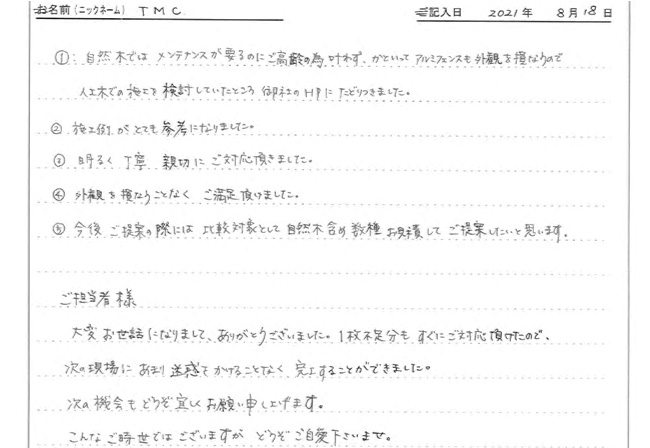 お名前（ニックネーム） TMC 記入日 2021年 8月18日
①：自然木では メンテナンスが要るのにご高齢の為叶わず、かといってアルミフェンスも外観を損なうので
人工木での施工を検討していたところ御社のHPにたどりつきました。
② 施工例がとても参考になりました。
③ 明るく丁寧 親切にご対応頂きました。
④ 外観を損なうことなく ご満足頂けました。
⑤ 今後 ご提案の際には 比較対象として自然木含め数種お見積してご提案したいと思います。
ご担当者様
大変お世話になりまして、ありがとうございました。1枚不足分もすぐにご対応頂けたので、
次の現場にあまり迷惑をかけることなく 完工することができました。
次の機会もどうぞ宜しくお願い申し上げます。
こんなご時世ではございますが どうぞご自愛下さいませ。